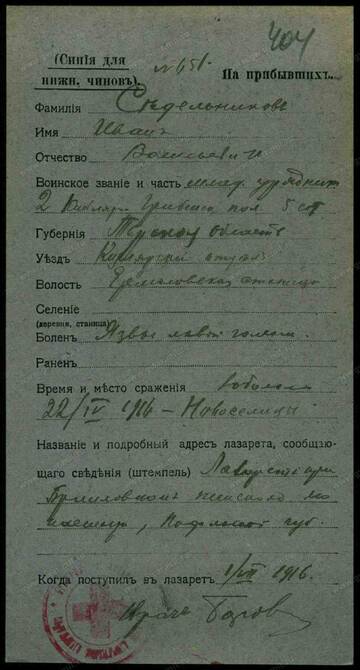 404
(Синія для
нижн. чиновъ).
№ 651.
На прибывшихъ.
Фамилія Сѣдельниковъ
Имя Иванъ
Отчество Васильевич
Воинское званіе и часть млад. урядник
2 Кизляро Гребенск пол 5 сот
Губернія Терская область
Уѣздъ Кизлярскій отдѣлъ
Волость Ермоловская станица
Селеніе
(деревня, станица)
Боленъ Язвы лѣвой голени
Раненъ
Время и мѣсто сраженія заболѣлъ
22/IV 1916 – Новоселицы
Названіе и подробный адресъ лазарета, сообщаю-
щаго свѣдѣнія (штемпель) Лазаретъ при
женском мо
, Подольской губ.
Когда поступилъ въ лазаретъ 1/VII 1916.
Врачъ